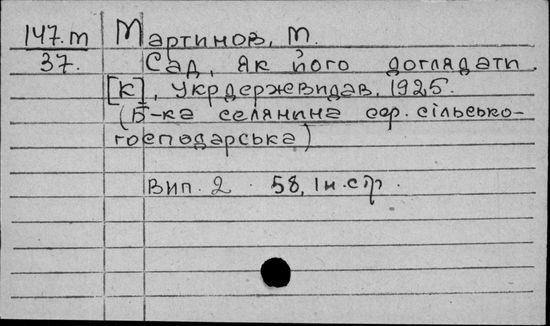 147.м Мартинов, М.
37. Сад, як його доглядати.
[К], Укрдержвидав, 1925.
(Б-ка селянина сер. сільсько-
господарська)
Вип. 2 58, Iн. стр.